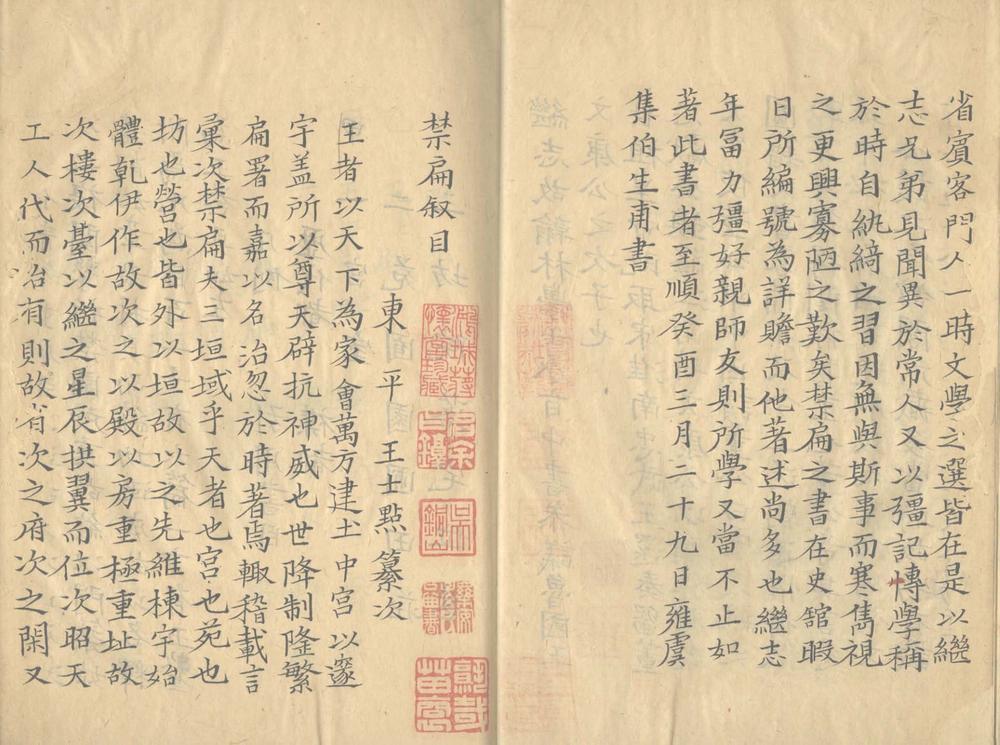 省賓客門人一時文學之選皆在是以繼
志兄弟見聞異於常人又以彊記博學稱
於時自紈綺之習因無與斯事而寒雋視
之更興寡陋之歎矣禁扁之書在史舘暇
日所編號為詳贍而他著述尚多也繼志
年冨力彊好親師友則所學又當不止如
著此書者至順癸酉三月二十九日雍虞
集伯生甫書
禁扁叙目
東平 王士點纂次
王者以天下為家會萬方建土中宮以邃
宇盖所以尊天辟抗神威也世降制隆繁
扁署而嘉以名治忽於時著焉輙稽載言
彙次禁扁夫三垣域乎天者也宮也苑也
坊也營也皆外以垣故以之先維棟宇始
體乾伊作故次之以殿以房重極重址故
次樓次臺以繼之星辰拱翼而位次昭天
工人代而治有則故省次之府次之閑又